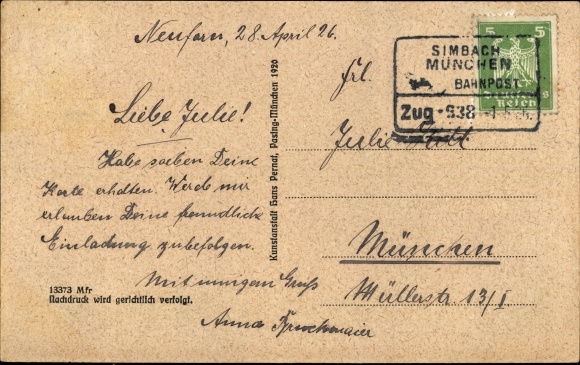 Neufarn, 28. April 26.
Liebe Julie!
Habe soeben Deine
Karte erhalten. Werde mir
erlauben Deine freundliche
Einladung zubefolgen.
Mit innigem Gruß
Anna
13373 Mfr
Nachdruck wird gerichtlich verfolgt.
Kunstanstalt Hans Pernat, Pasing-München 1920
5 5
SIMBACH
MÜNCHEN
BAHNPOST
Zug 938
Frl.
Julie
München
Müllerstr. 13/I